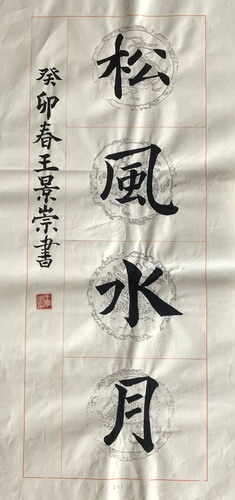 松風水月
癸卯春王景崇書